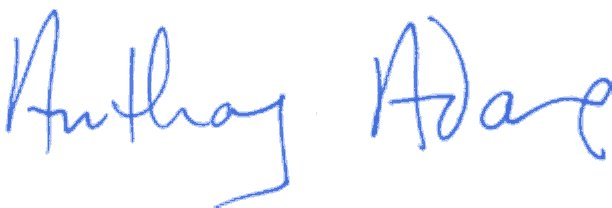 Anthony Adams